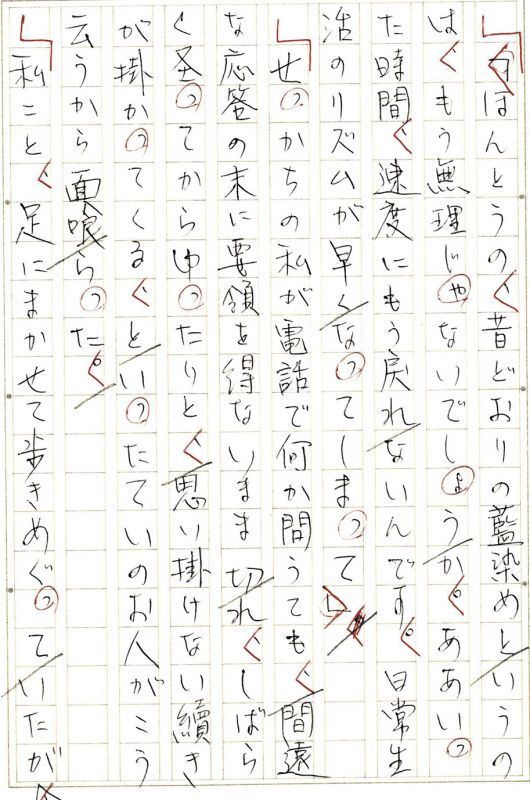 「ほんとうの、昔どおりの藍染めというの
は、もう無理じゃないでしょうか。ああいっ
た時間、速度にもう戻れないんです。日常生
活のリズムが早くなってしまって」
「せっかちの私が電話で何か問うても、間遠
な応答の末に要領を得ないまま切れ、しばら
く圣ってからゆったりと、思い掛けない續き
が掛かってくる、といったていのお人がこう
云うから面喰らった。
「私こと、足にまかせて歩きめぐっていたが